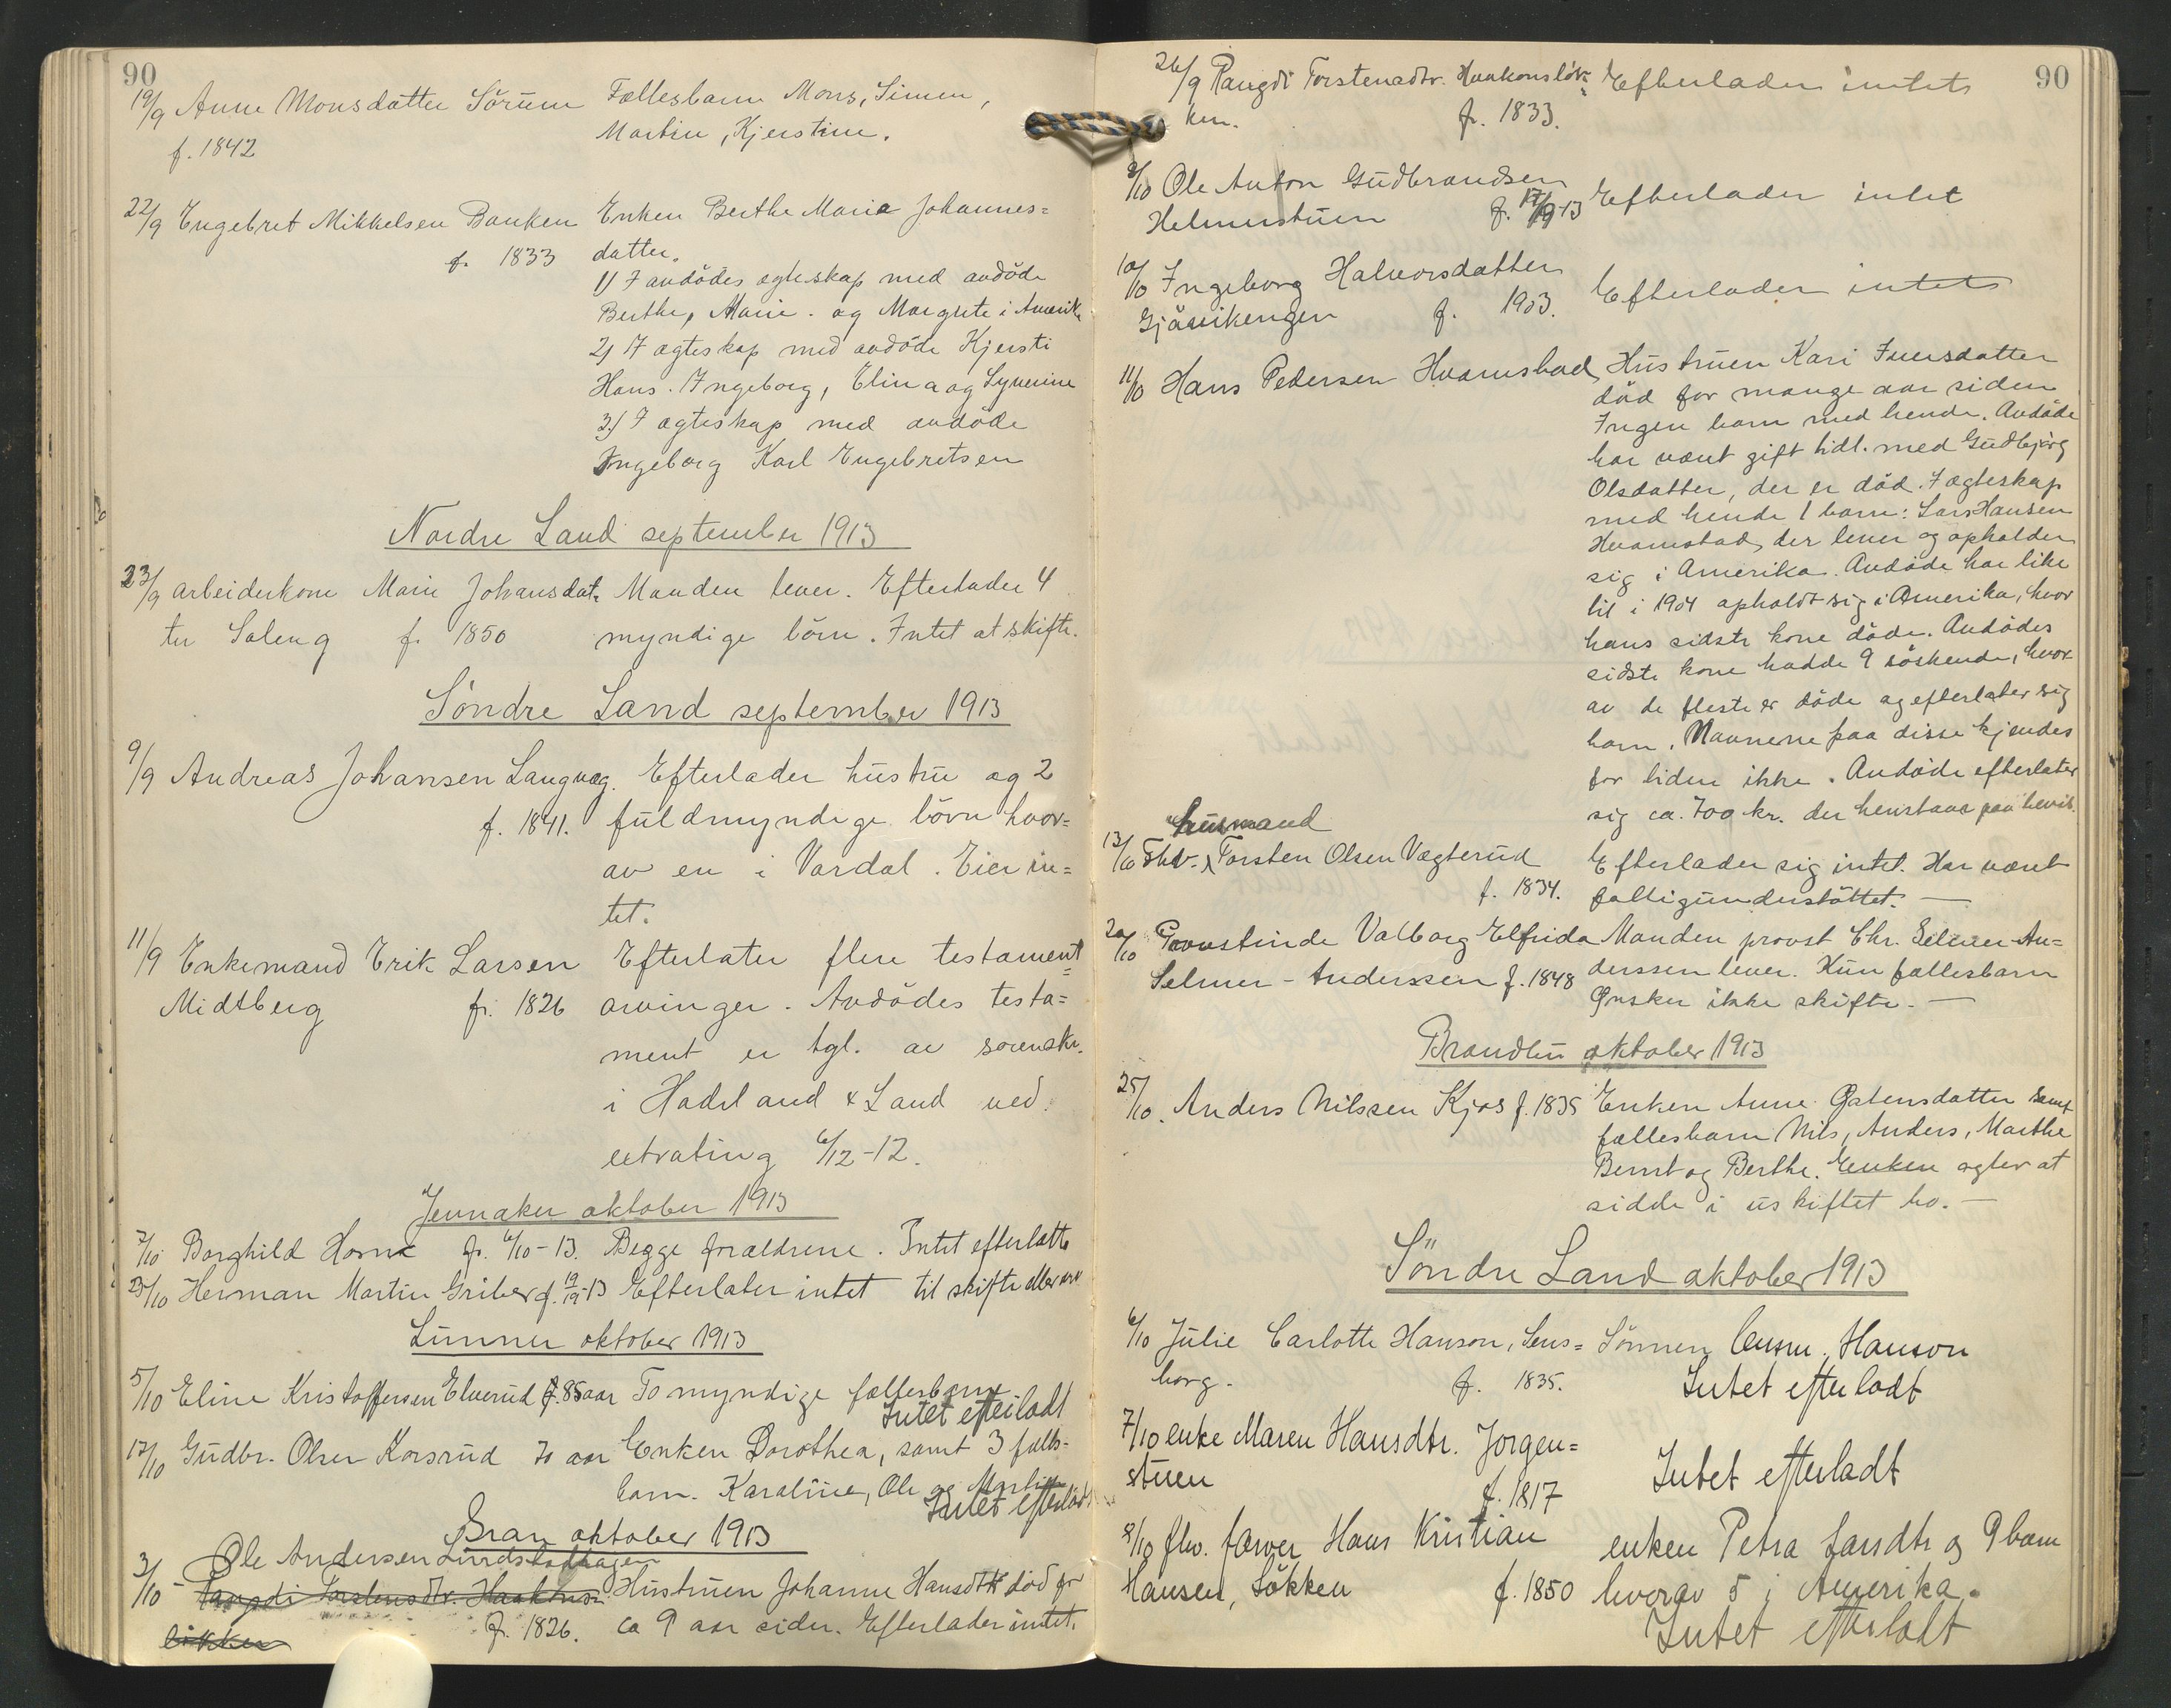 90
19/9 Anne Monsdatter Sörum Fællesbarn Mons, Simen,
f. 1842 Martin, Kjerstine.
22/9 Engebret Mikkelsen Banken Enken Berthe Marie Johannes=
f. 1833 datter.
1) I avdödes egteskap med avdöde
Berthe, Marie. og Margrete i Amerika
2) I egteskap med avdöde Kjersti
Hans. Ingeborg, Elina og Syverine
3) I egteskap med avdöde
Ingeborg Karl Engebretsen
Nordre Land september 1913
23/9 arbeiderkone Marie Johansdat= Manden lever. Efterlader 4
ter Saleng f. 1850 myndige börn. Intet at skifte.
Söndre Land september 1913
9/9 Andreas Johansen Langvæg. Efterlader hustru og 2
f. 1841. fuldmyndige börn hvor=
av en i Vardal. Eier in=
tet.
11/9 Enkemand Erik Larsen Efterlater flere testament=
Midtberg f. 1826 arvinger. Avdödes testa=
ment er tgl. av sorenskr.
i Hadeland & Land ved
extrating 6/12-12.
Jevnaker oktober 1913
7/10 Borghild Horne f. 6/10-13. Begge forældrene. Intet efterlatt
25/10 Herman Martin Griber f. 19/9-13 Efterlater intet til skifte eller arv
Lunner oktober 1913
5/10 Eline Kristoffersen Elverud f. 85 aar To myndige fællesbarn
Intet efterladt
17/10 Gudbr. Olsen Korsrud 70 aar Enken Dorothea, samt 3 fælles=
barn. Karoline, Ole og Martin
Intet efterladt
Gran oktober 1913
Ole Andersen Lundstadhagen
3/10 Rangdi Torstensdtr. Haakons= Hustruen Johanne Hansdtr död for
løkken f. 1826. ca 9 aar siden. Efterlader intet.
90
26/9 Rangdi Torstensdtr. Haakonsløk= Efterlader intet
ken. f. 1833.
8/10 Ole Anton Gudbrandsen
Helmerstuen f. 17/9-13 Efterlader intet
10/10 Ingeborg Halvorsdatter
Gjövikengen f. 1903. Efterlader intet
11/10 Hans Pedersen Hvamstad, Hustruen Kari Iversdatter
död for mange aar siden
Ingen barn med hende. Avdöde
har været gift tidl. med Gudbjørg
Olsdatter, der er död. I egteskap
med hende 1 barn: Lars Hansen
Hvamstad, der lever og opholder
sig i Amerika. Avdöde har like
til i 1904 opholdt sig i Amerika, hvor
hans sidste kone döde. Avdödes
sidste kone hadde 9 söskende, hvor
av de fleste er döde og efterlater sig
barn. Navnene paa disse kjendes
for tiden ikke. Avdöde efterlater
sig ca. 700 kr. der henstaar paa bevis.
husmand
13/10 Fhv. Torsten Olsen Vægterud Efterlader sig intet. Har været
f. 1834. fattigunderstöttet. —
20/10 Provstinde Valborg Elfrida Manden provst Chr. Selmer-An=
Selmer-Anderssen f. 1848 derssen lever. Kun fællesbarn
Ønsker ikke skifte. —
Brandbu oktober 1913
25/10. Anders Nilssen Kjos f. 1835 Enken Anne Ostensdatter samt
fællesbarn Nils, Anders, Marthe
Bernt og Berthe. Enken agter at
sidde i uskiftet bo. —
Söndre Land oktober 1913
6/10 Julie Carlotte Hanson, Sens= Sönnen Hanson
borg. f. 1835. Intet efterladt
7/10 enke Maren Hansdtr. Jorgen=
stuen f. 1817 Intet efterladt
8/10 fhv. farver Hans Kristian enken Petra Larsdtr og 9 barn
Hansen, Løkken f. 1850 hvorav 5 i Amerika.
Intet efterladt